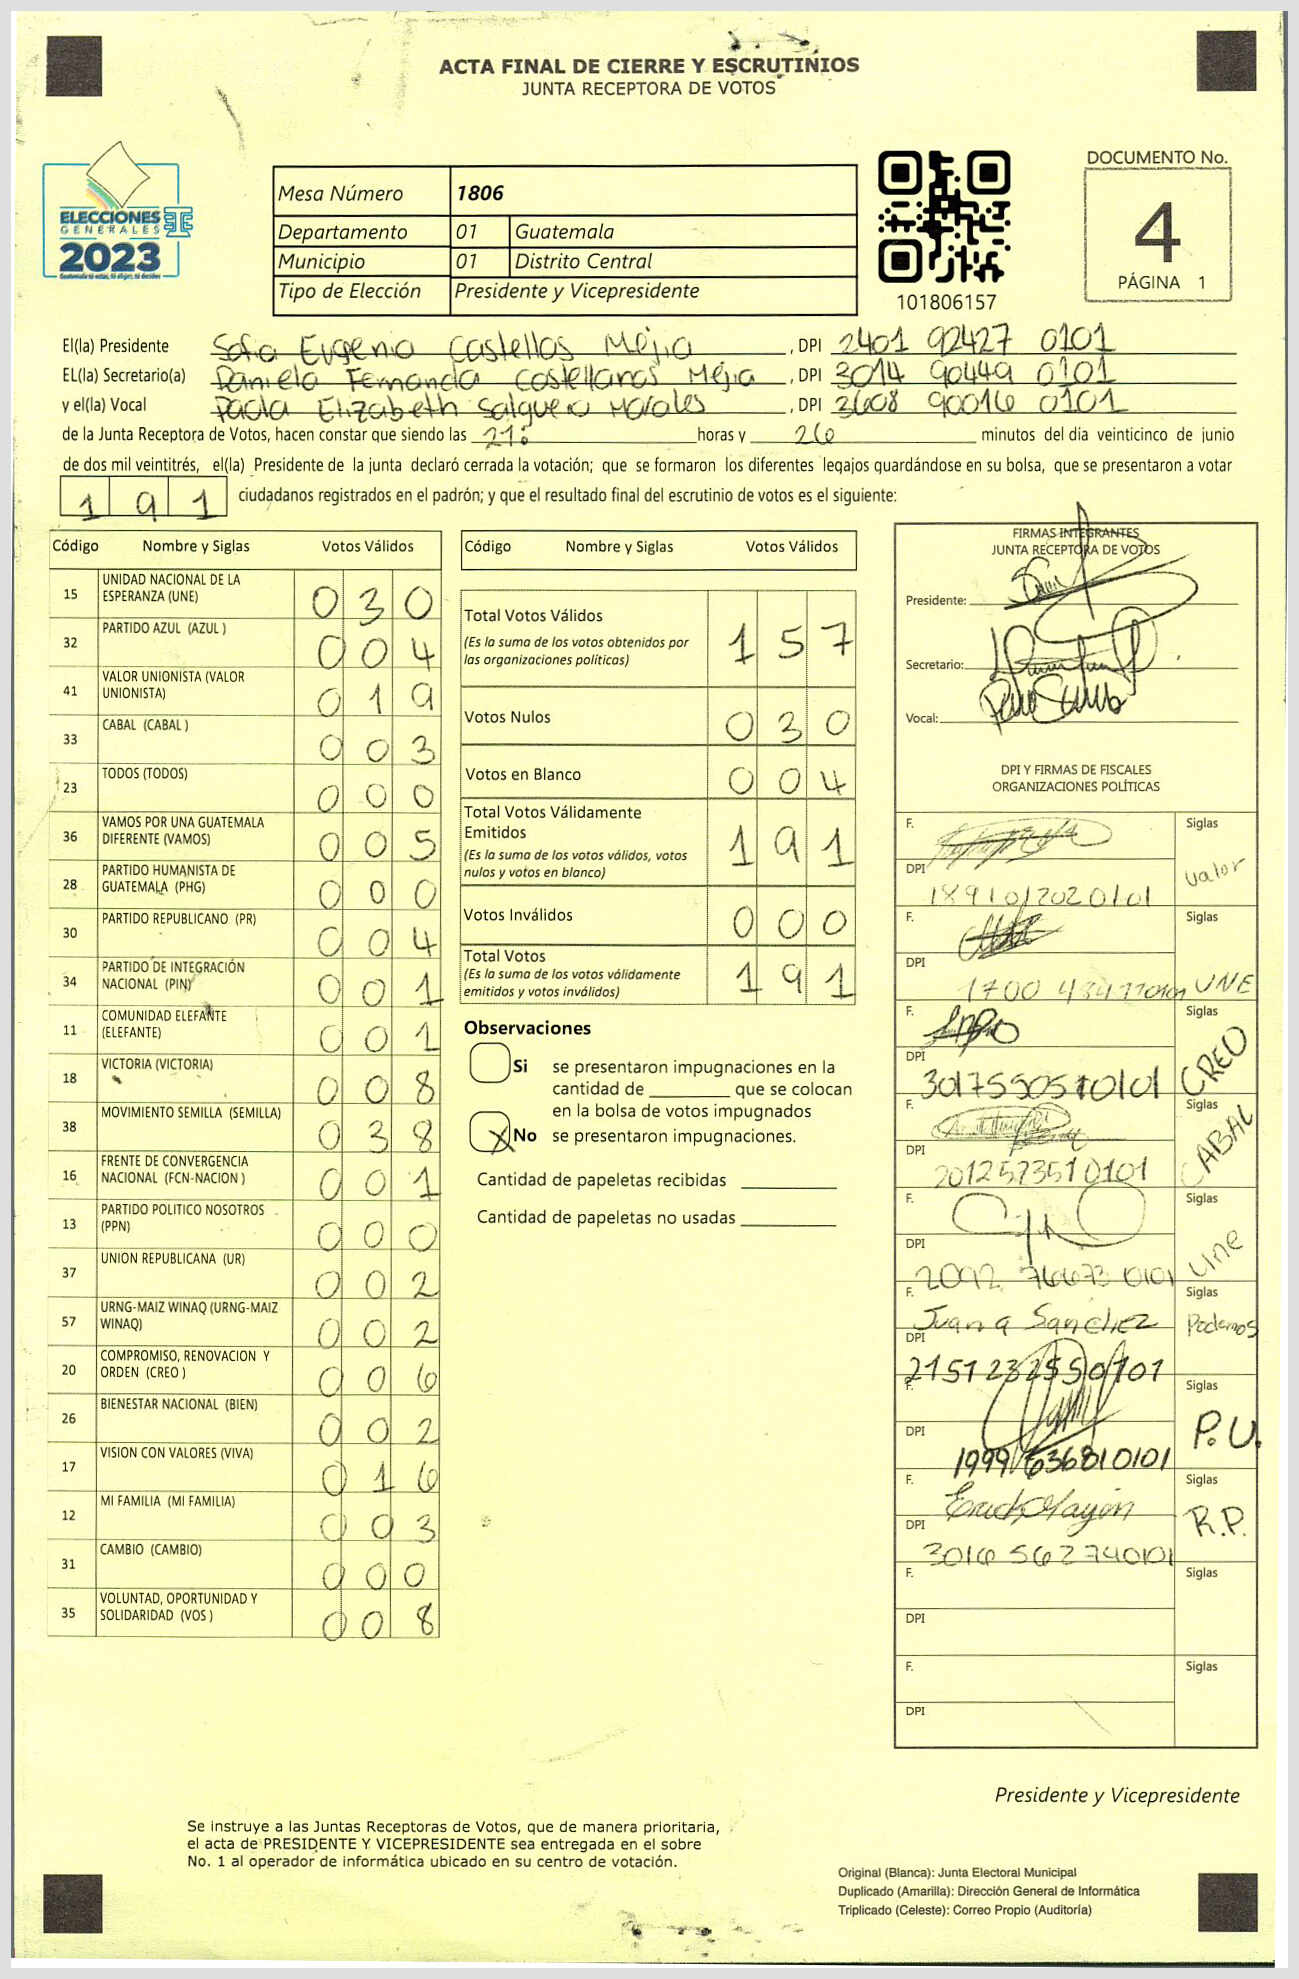 ACTA FINAL DE CIERRE Y ESCRUTINIOS
JUNTA RECEPTORA DE VOTOS
ELECCIONES
GENERALES
2023
Mesa Número 1806
Departamento 01 Guatemala
Municipio 01 Distrito Central
Tipo de Elección Presidente y Vicepresidente
101806157
DOCUMENTO No.
4
PÁGINA 1
El(la) Presidente Sofia Eugenia Castellos Mejia , DPI 2401 92427 0101
EL(la) Secretario(a) Daniela Fernanda Castellanos Mejia , DPI 3014 90449 0101
y el(la) Vocal Paola Elizabeth Salguero Morales , DPI 3608 90016 0101
de la Junta Receptora de Votos, hacen constar que siendo las 21: horas y 26 minutos del día veinticinco de junio
de dos mil veintitrés, el(la) Presidente de la junta declaró cerrada la votación; que se formaron los diferentes legajos guardándose en su bolsa, que se presentaron a votar
191 ciudadanos registrados en el padrón; y que el resultado final del escrutinio de votos es el siguiente:
Código Nombre y Siglas Votos Válidos
15 UNIDAD NACIONAL DE LA ESPERANZA (UNE) 030
32 PARTIDO AZUL (AZUL ) 004
41 VALOR UNIONISTA (VALOR UNIONISTA) 019
33 CABAL (CABAL ) 003
23 TODOS (TODOS) 000
36 VAMOS POR UNA GUATEMALA DIFERENTE (VAMOS) 005
28 PARTIDO HUMANISTA DE GUATEMALA (PHG) 000
30 PARTIDO REPUBLICANO (PR) 004
34 PARTIDO DE INTEGRACIÓN NACIONAL (PIN) 001
11 COMUNIDAD ELEFANTE (ELEFANTE) 001
18 VICTORIA (VICTORIA) 008
38 MOVIMIENTO SEMILLA (SEMILLA) 038
16 FRENTE DE CONVERGENCIA NACIONAL (FCN-NACION ) 001
13 PARTIDO POLITICO NOSOTROS (PPN) 000
37 UNION REPUBLICANA (UR) 002
57 URNG-MAIZ WINAQ (URNG-MAIZ WINAQ) 002
20 COMPROMISO, RENOVACION Y ORDEN (CREO ) 006
26 BIENESTAR NACIONAL (BIEN) 002
17 VISION CON VALORES (VIVA) 016
12 MI FAMILIA (MI FAMILIA) 003
31 CAMBIO (CAMBIO) 000
35 VOLUNTAD, OPORTUNIDAD Y SOLIDARIDAD (VOS ) 008
Código Nombre y Siglas Votos Válidos
Total Votos Válidos 157
(Es la suma de los votos obtenidos por
las organizaciones políticas)
Votos Nulos 030
Votos en Blanco 004
Total Votos Válidamente
Emitidos 191
(Es la suma de los votos válidos, votos
nulos y votos en blanco)
Votos Inválidos 000
Total Votos 191
(Es la suma de los votos válidamente
emitidos y votos inválidos)
Observaciones
Si se presentaron impugnaciones en la
cantidad de ________ que se colocan
en la bolsa de votos impugnados
X No se presentaron impugnaciones.
Cantidad de papeletas recibidas
Cantidad de papeletas no usadas
FIRMAS INTEGRANTES
JUNTA RECEPTORA DE VOTOS
Presidente:
Secretario:
Vocal:
DPI Y FIRMAS DE FISCALES
ORGANIZACIONES POLÍTICAS
F. Siglas
DPI 1891012020101 Valor
F. Siglas
DPI 1700 UNE
F. Siglas
DPI 3017550510101 CREO
F. Siglas
DPI 2012573510101 CABAL
F. Siglas
DPI 2092 76673 0101 Une
F. Juana Sanchez Siglas
DPI 2151232550101 Podemos
F. Siglas
DPI 1999636810101 P.U.
F. Siglas
DPI 3016562740101 R.P.
F. Siglas
DPI
F. Siglas
DPI
Presidente y Vicepresidente
Se instruye a las Juntas Receptoras de Votos, que de manera prioritaria,
el acta de PRESIDENTE Y VICEPRESIDENTE sea entregada en el sobre
No. 1 al operador de informática ubicado en su centro de votación.
Original (Blanca): Junta Electoral Municipal
Duplicado (Amarilla): Dirección General de Informática
Triplicado (Celeste): Correo Propio (Auditoría)